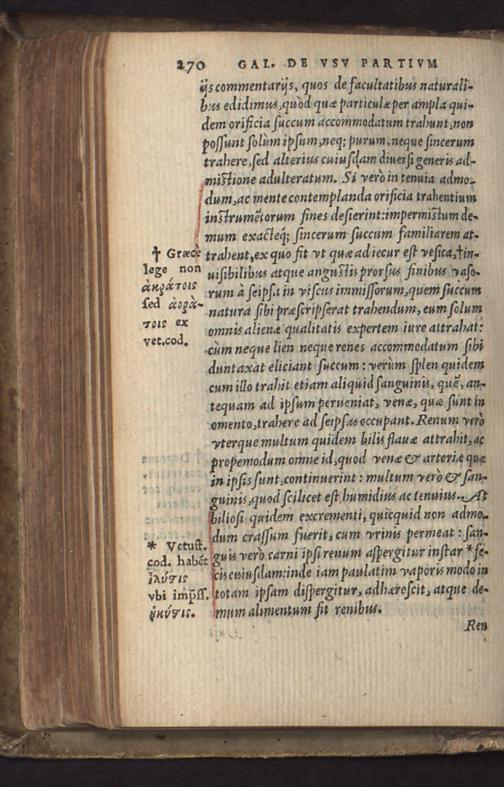 270 GAL. DE VSV PARTIVM
ijs commentarijs, quos de facultatibus naturali-
bus edidimus, quòd quæ particulæ per ampla qui-
dem orificia succum accommodatum trahunt, non
possunt solum ipsum, neq; purum, neque sincerum
trahere, sed alterius cuiusdam diuersi generis ad-
mistione adulteratum. Si verò in tenuia admo-
dum, ac mente contemplanda orificia trahentium
instrumētorum fines desierint: impermistum de-
mum exacteq́; sincerum succum familiarem at-
trahent, ex quo fit vt quæ ad iecur est vesica, †in-
uisibilibus atque angustis prorsus finibus vaso-
rum à seipsa in viscus immissorum, quem succum
natura sibi præscripserat trahendum, eum solum
omnis alienæ qualitatis expertem iure attrahat:
cùm neque lien neque renes accommodatum sibi
duntaxat eliciant succum: verùm splen quidem
cum illo trahit etiam aliquid sanguinis, quē, an-
tequam ad ipsum perueniat, venæ, quæ sunt in
omento, trahere ad seipsas occupant. Renum verò
vterque multum quidem bilis flauæ attrahit, ac
propemodum omne id, quod venæ & arteriæ quæ
in ipsis sunt, continuerint: multum verò & san-
guinis, quod scilicet est humidius ac tenuius. At
biliosi quidem excrementi, quicquid non admo-
dum crassum fuerit, cum vrinis permeat: san-
guis verò carni ipsi renum aspergitur instar *fe-
cis cuiusdam: inde iam paulatim vaporis modo in
totam ipsam dispergitur, adhærescit, atque de-
mum alimentum fit renibus.
Ren
† Græcè
lege non
ἀκράτοις
sed ἀορά-
τοις ex
vet. cod.
* Vetust.
cod. habēt
ἰλύτις
vbi impſſ.